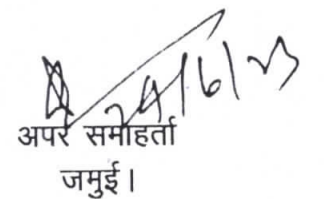 24/6/23
अपर समाहर्ता
जमुई।